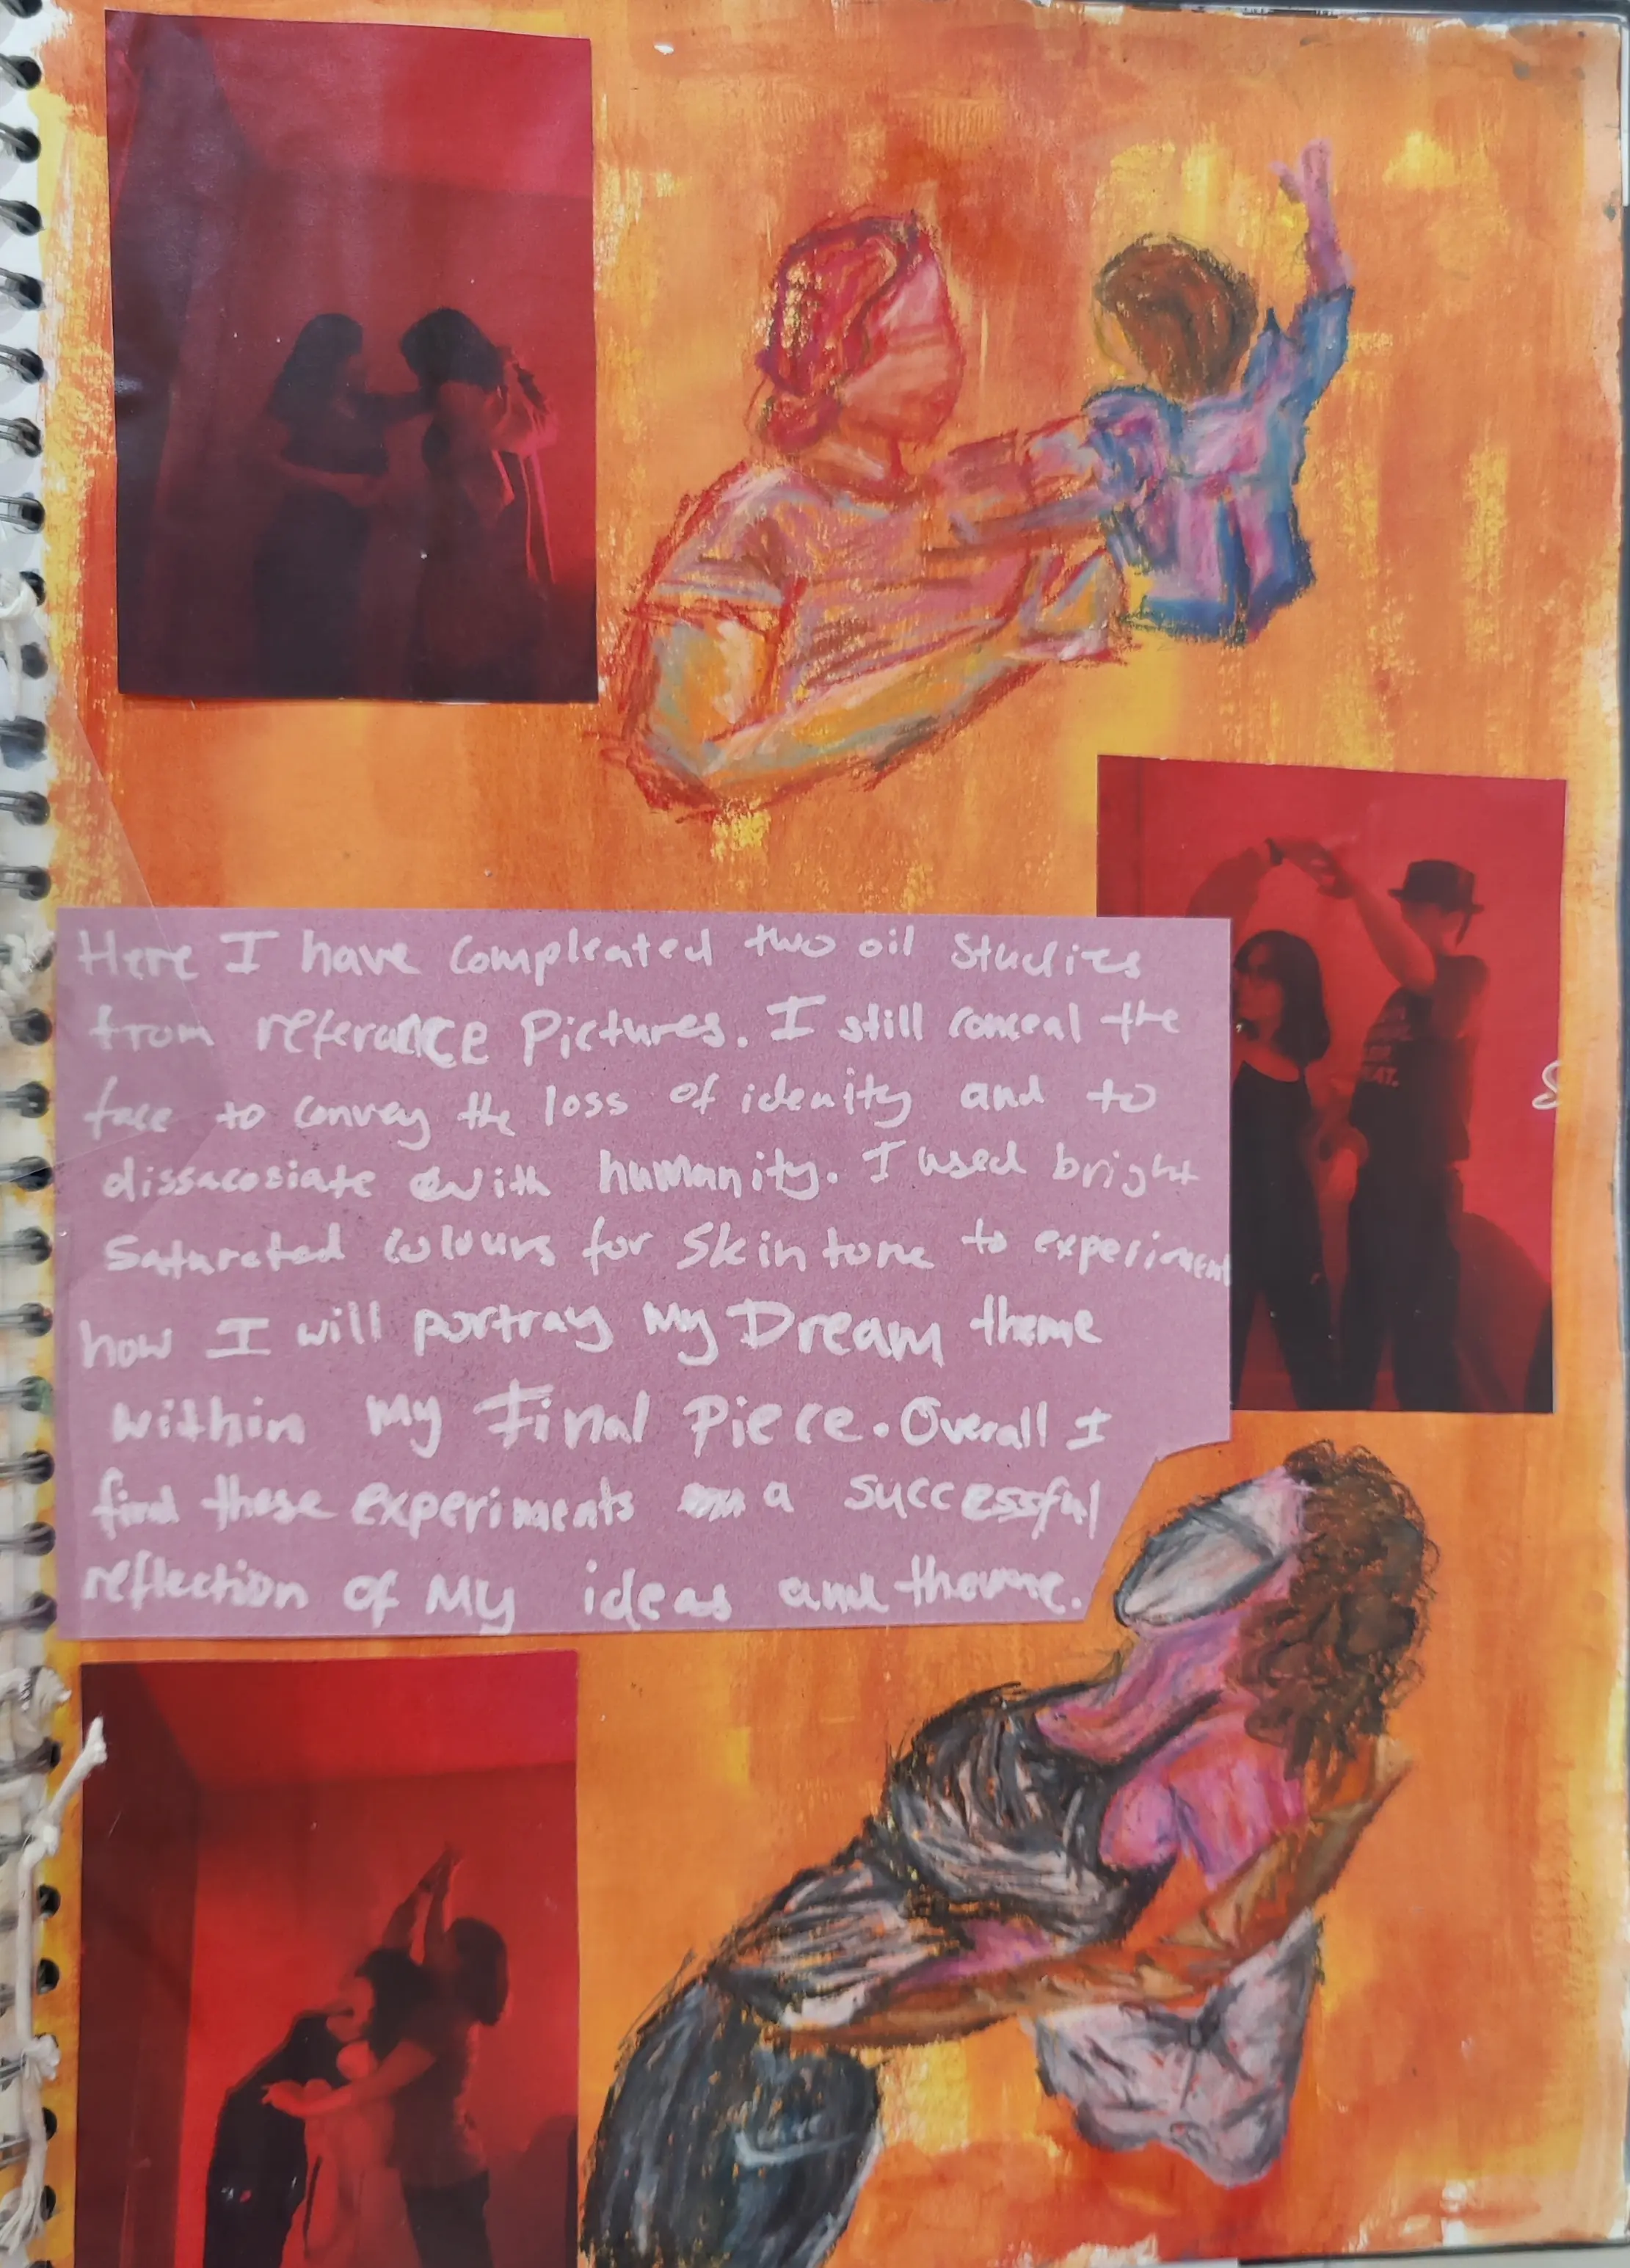 Here I have compleated two oil studies
from referance pictures. I still conceal the
face to convey the loss of idenity and to
dissacosiate with humanity. I used bright
saturated colours for skin tone to experiment
how I will portray my Dream theme
within my Final Piece. Overall I
find these experiments a successful
reflection of My ideas and theme.
EAT.